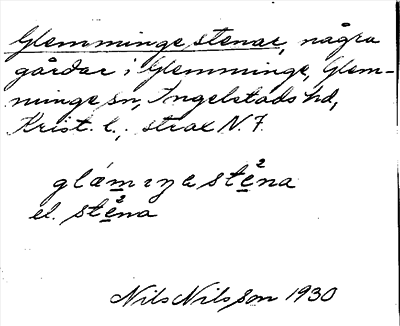 Glemminge stenar, några
gårdar i Glemminge, Glem-
minge sn, Ingelstads hd,
Krist. l., strax N. 7.
glámɪŋe stḛ²na
el. stḛ²na
Nils Nilsson 1930